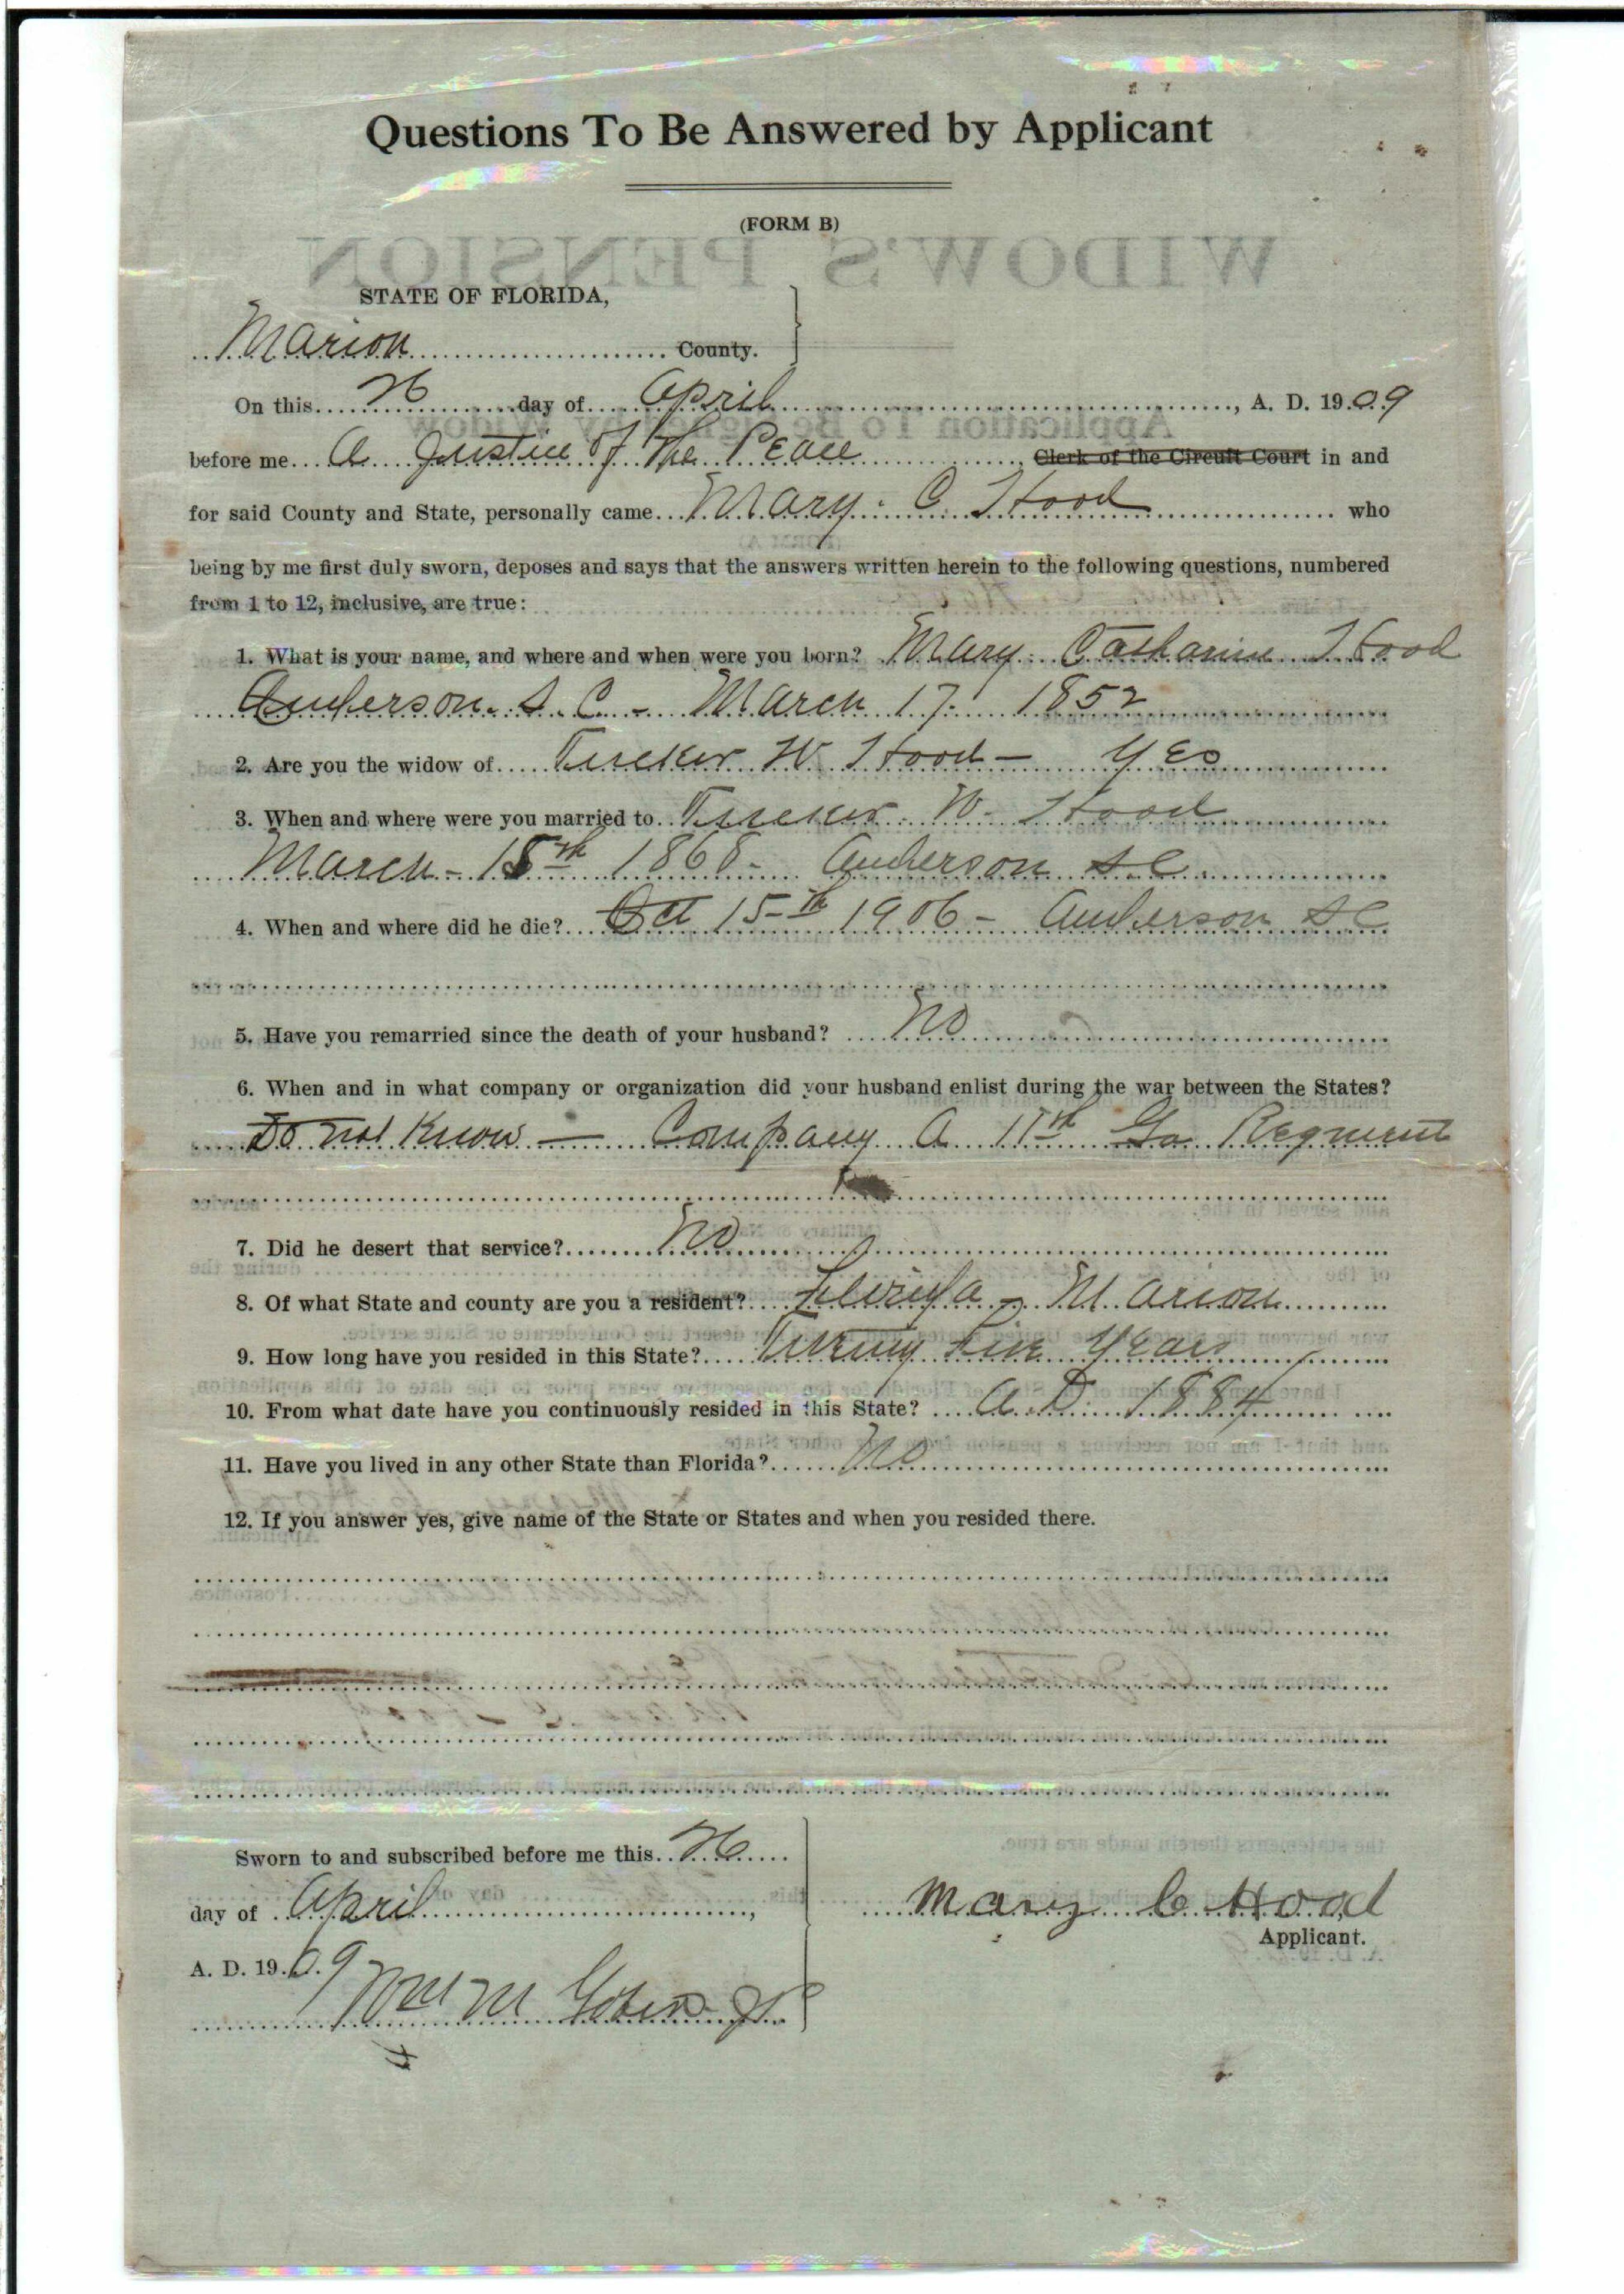 Questions To Be Answered by Applicant
(FORM B)
WIDOW'S PENSION
STATE OF FLORIDA,
Marion County.
On this 26 day of April, A. D. 1909
before me A Justice of the Peace, Clerk of the Circuit Court in and
for said County and State, personally came Mary C Hood who
being by me first duly sworn, deposes and says that the answers written herein to the following questions, numbered
from 1 to 12, inclusive, are true:
1. What is your name, and where and when were you born? Mary Catharine Hood
Anderson S. C - March 17 1852
2. Are you the widow of Tucker W Hood - Yes
3. When and where were you married to Tucker W. Hood
March - 15th 1868 - Anderson S C
4. When and where did he die? Oct 15th 1906 - Anderson S C
5. Have you remarried since the death of your husband? No
6. When and in what company or organization did your husband enlist during the war between the States?
Do not Know - Company A 11th Ga Regment
7. Did he desert that service? No
8. Of what State and county are you a resident? Florida - Marion
9. How long have you resided in this State? Twenty Five Years
10. From what date have you continuously resided in this State? A. D. 1884
11. Have you lived in any other State than Florida? No
12. If you answer yes, give name of the State or States and when you resided there.
Sworn to and subscribed before me this 26
day of April,
A. D. 1909
Mary C Hood
Applicant.
Wm M